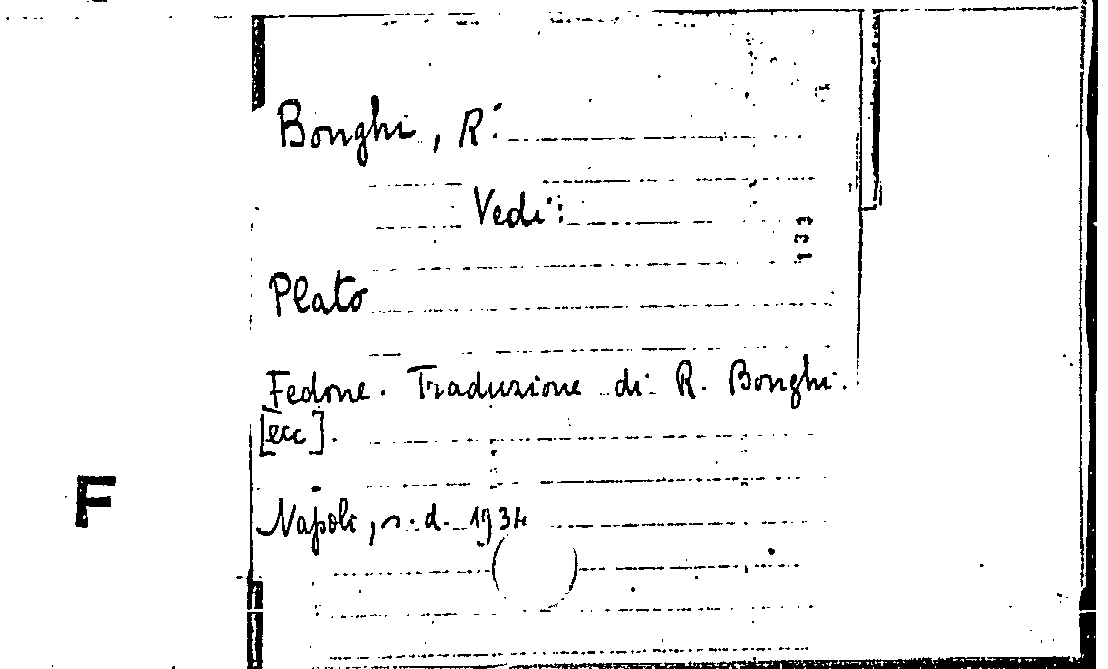 Bonghi, R.
Vedi:
133
Plato
Fedone. Traduzione di R. Bonghi.
[ecc].
F
Napoli, n. d. 1934